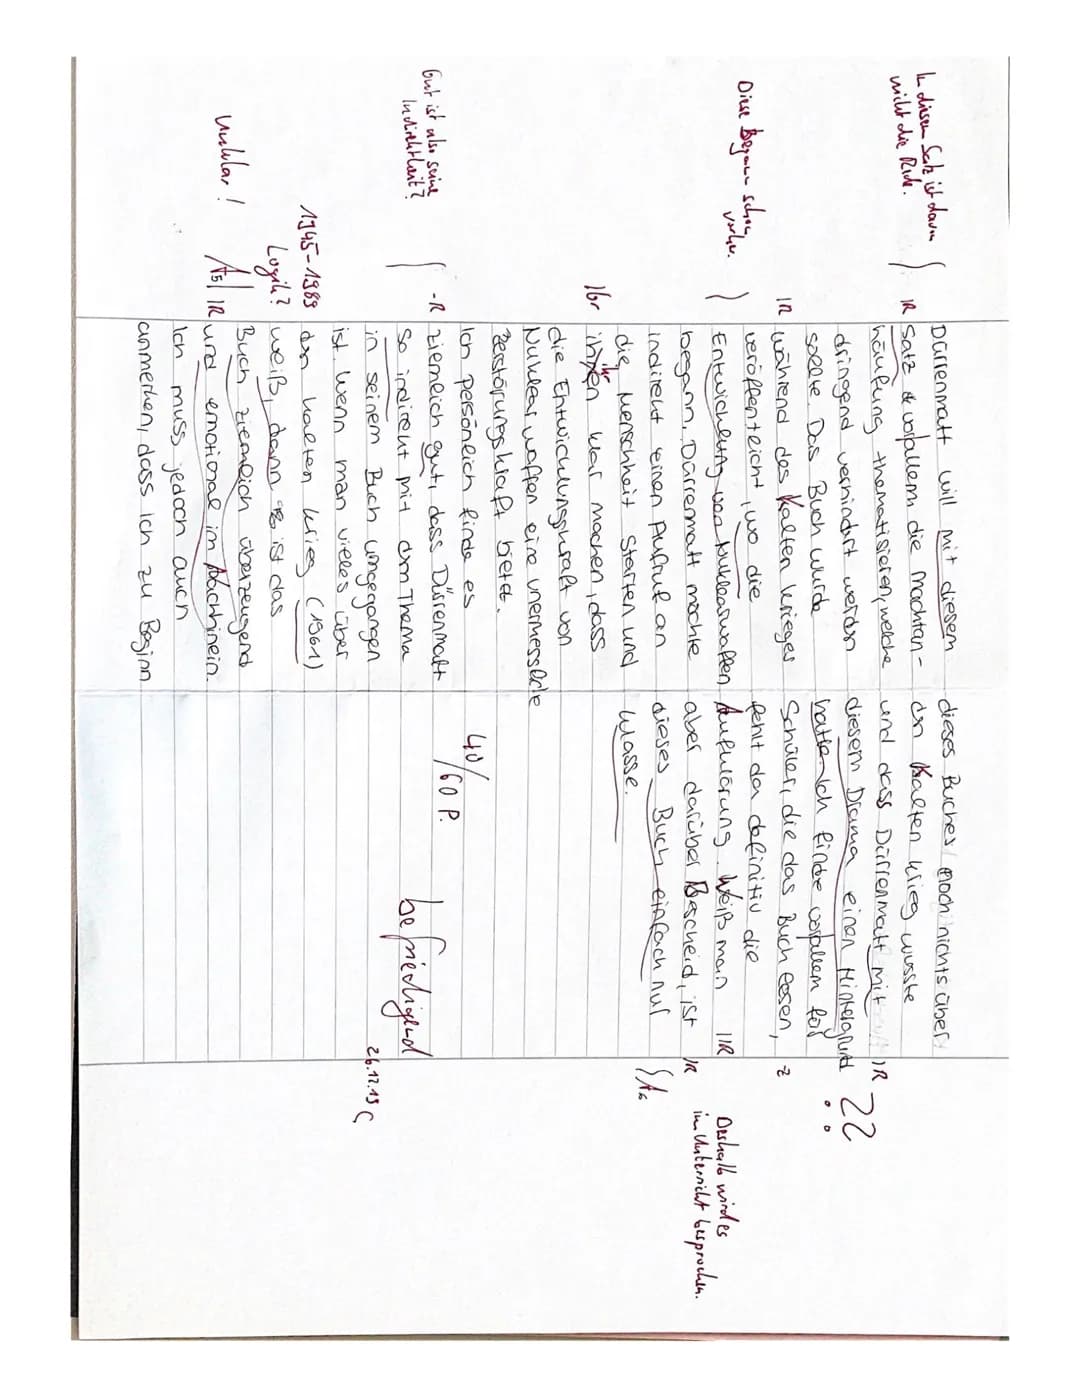 Dürrenmatt will mit diesem
Satz & vorallem die Machtan-
häufung thematisieren, welche
dringend verhindert werden
sollte. Das Buch wurde
während des Kalten Krieges
veröffentlicht, wo die
Entwicklung von Nuklearwaffen
begann. Dürrenmatt möchte
indirekt einen Aufruf an
die Menschheit starten und
ihr klar machen, dass
die Entwicklungskraft von
Nuklearwaffen eine unermessliche
Zerstörungskraft bietet.
Ich persönlich finde es
ziemlich gut, dass Dürrenmatt
so indirekt mit dem Thema
in seinem Buch umgegangen
ist. Wenn man vieles über
den kalten Krieg (1961)
weiß, dann ist das
Buch ziemlich überzeugend
und emotional im Nachhinein.
Ich muss jedoch auch
anmerken, dass ich zu Beginn
dieses Buches noch nichts über
den Kalten Krieg wusste
und dass Dürrenmatt mit
diesem Drama einen Hintergrund
hatte. Ich finde vorallem für
Schüler, die das Buch lesen,
fehlt da definitiv die
Aufklärung. Weiß man
aber darüber Bescheid, ist
dieses Buch einfach nur
klasse.
40/60 P.
befriedigend
26.12.19
In diesem Satz ist davon
nicht die Rede.
IR
IR
Diese begann schon
vorher.
Ibr
Gut ist also seine
Indirektheit?
-R
1945-1989
Logik?
Unklar!
A5 IR
IR
??
-z
IIR
IR
A6
Deshalb wird es
im Unterricht besprochen.